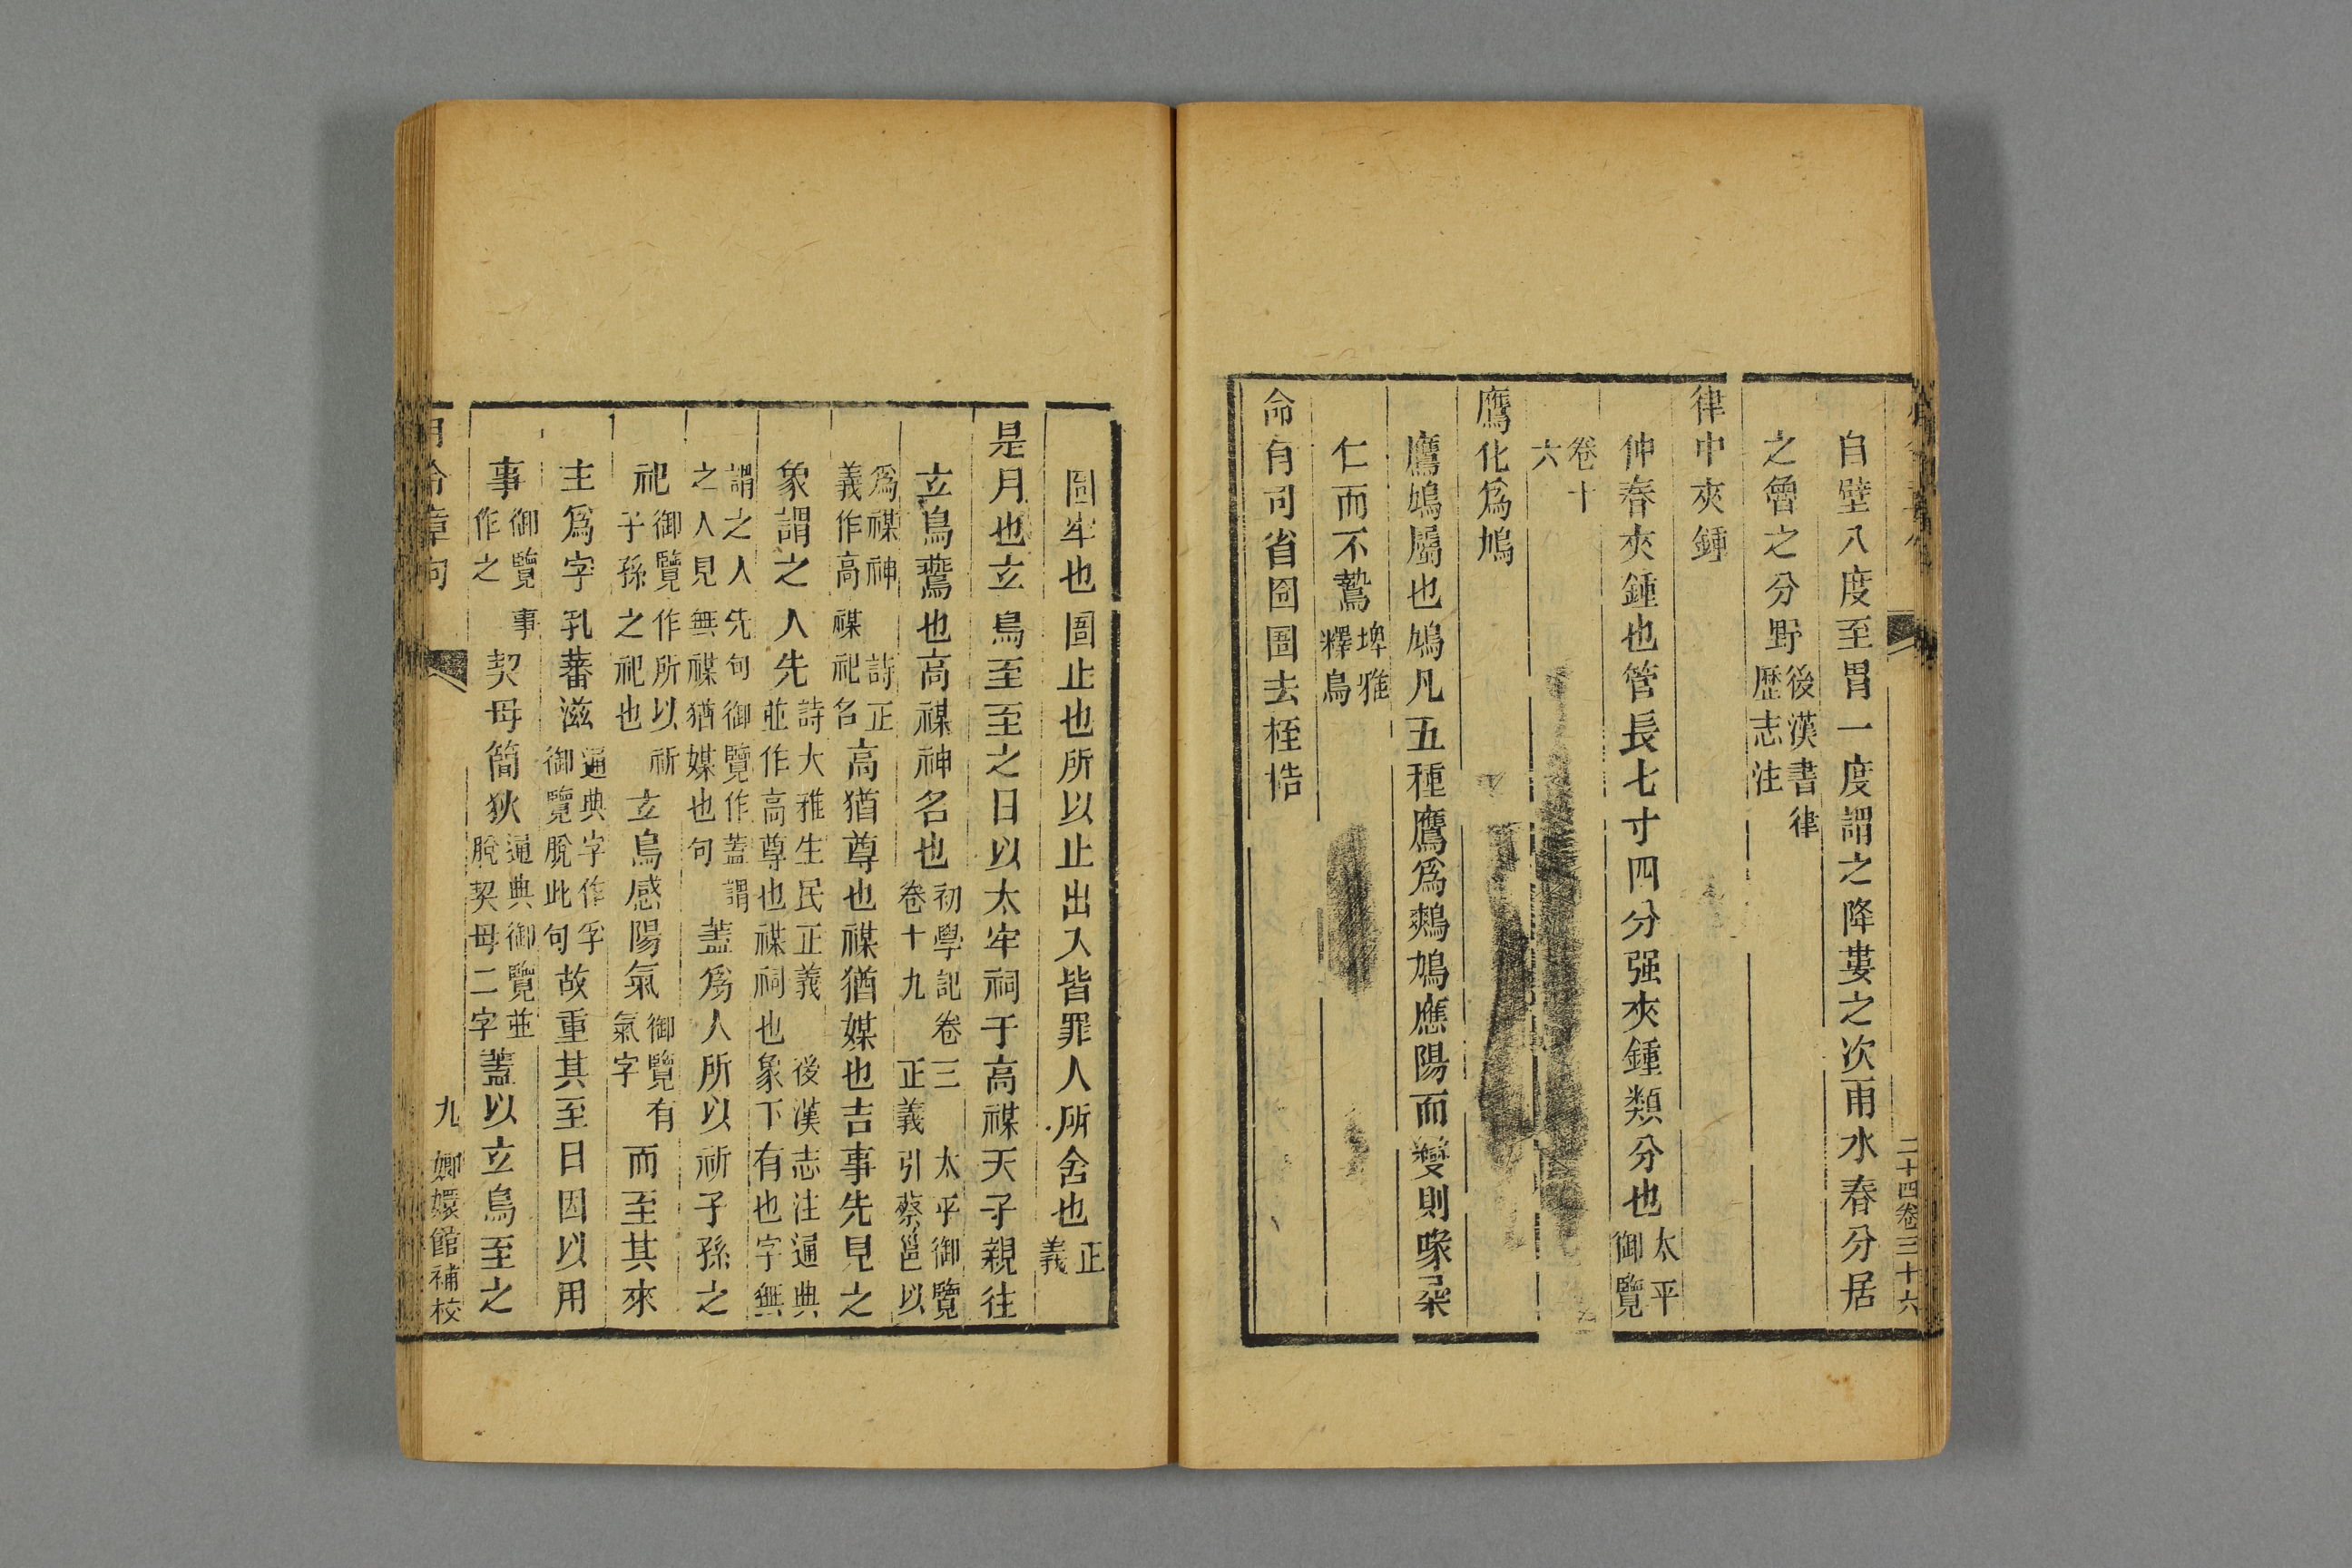 自壁八度至胃一度謂之降婁之次雨水春分居
之魯之分野後漢書律歷志注
律中夾鍾
仲春夾鍾也管長七寸四分强夾鍾類分也太平御覽
卷十六
鷹化爲鳩
鷹鳩屬也鳩凡五種鷹爲鷞鳩應陽而變則喙柔
仁而不鷙埤雅釋鳥
命有司省囹圄去桎梏
二十四卷三十六
囹牢也圄止也所以止出入皆罪人所舍也正義
是月也玄鳥至至之日以太牢祠于高禖天子親往
玄鳥鷰也高禖神名也初學記卷三太平御覽卷十九正義引蔡邕以
爲禖神詩正義作高禖祀名高猶尊也禖猶媒也吉事先見之
象謂之人先詩大雅生民正義後漢志注通典並作高尊也禖祠也象下有也字無
謂之人先句御覽作蓋謂之人見無禖猶媒也句蓋爲人所以祈子孫之
祀御覽作所以祈子孫之祀也玄鳥感陽氣御覽有氣字而至其來
主爲字乳蕃滋通典字作孚御覽脫此句故重其至日因以用
事御覽事作之契母簡狄通典御覽並脫契母二字蓋以玄鳥至之
月令章句
九
嫏嬛館補校